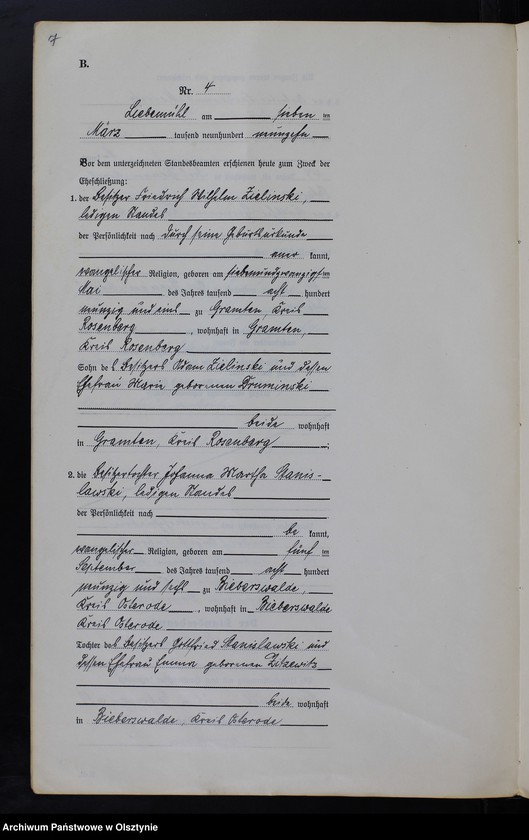 7
B.
Nr. 4
Liebemühl am sieben ten
März tausend neunhundert neunzehn
Vor dem unterzeichneten Standesbeamten erschienen heute zum Zweck der
Eheschließung:
1. der Besitzer Friedrich Wilhelm Zielinski,
ledigen Standes
der Persönlichkeit nach durch seine Geburtsurkunde
aner kannt,
evangelischer Religion, geboren am siebenundzwanzigsten
Mai des Jahres tausend acht hundert
neunzig und eins zu Gramten, Kreis
Rosenberg, wohnhaft in Gramten,
Kreis Rosenberg
Sohn des Besitzers Adam Zielinski und dessen
Ehefrau Marie geborenen Druminski
beide wohnhaft
in Gramten, Kreis Rosenberg;
2. die Besitzertochter Johanna Martha Stanis-
lawski, ledigen Standes
der Persönlichkeit nach
be kannt,
evangelischer Religion, geboren am fünf ten
September des Jahres tausend acht hundert
neunzig und sechs zu Bieberswalde,
Kreis Osterode, wohnhaft in Bieberswalde
Kreis Osterode
Tochter des Besitzers Gottfried Stanislawski und
dessen Ehefrau Emma geborenen
beide wohnhaft
in Bieberswalde, Kreis Osterode
Archiwum Państwowe w Olsztynie